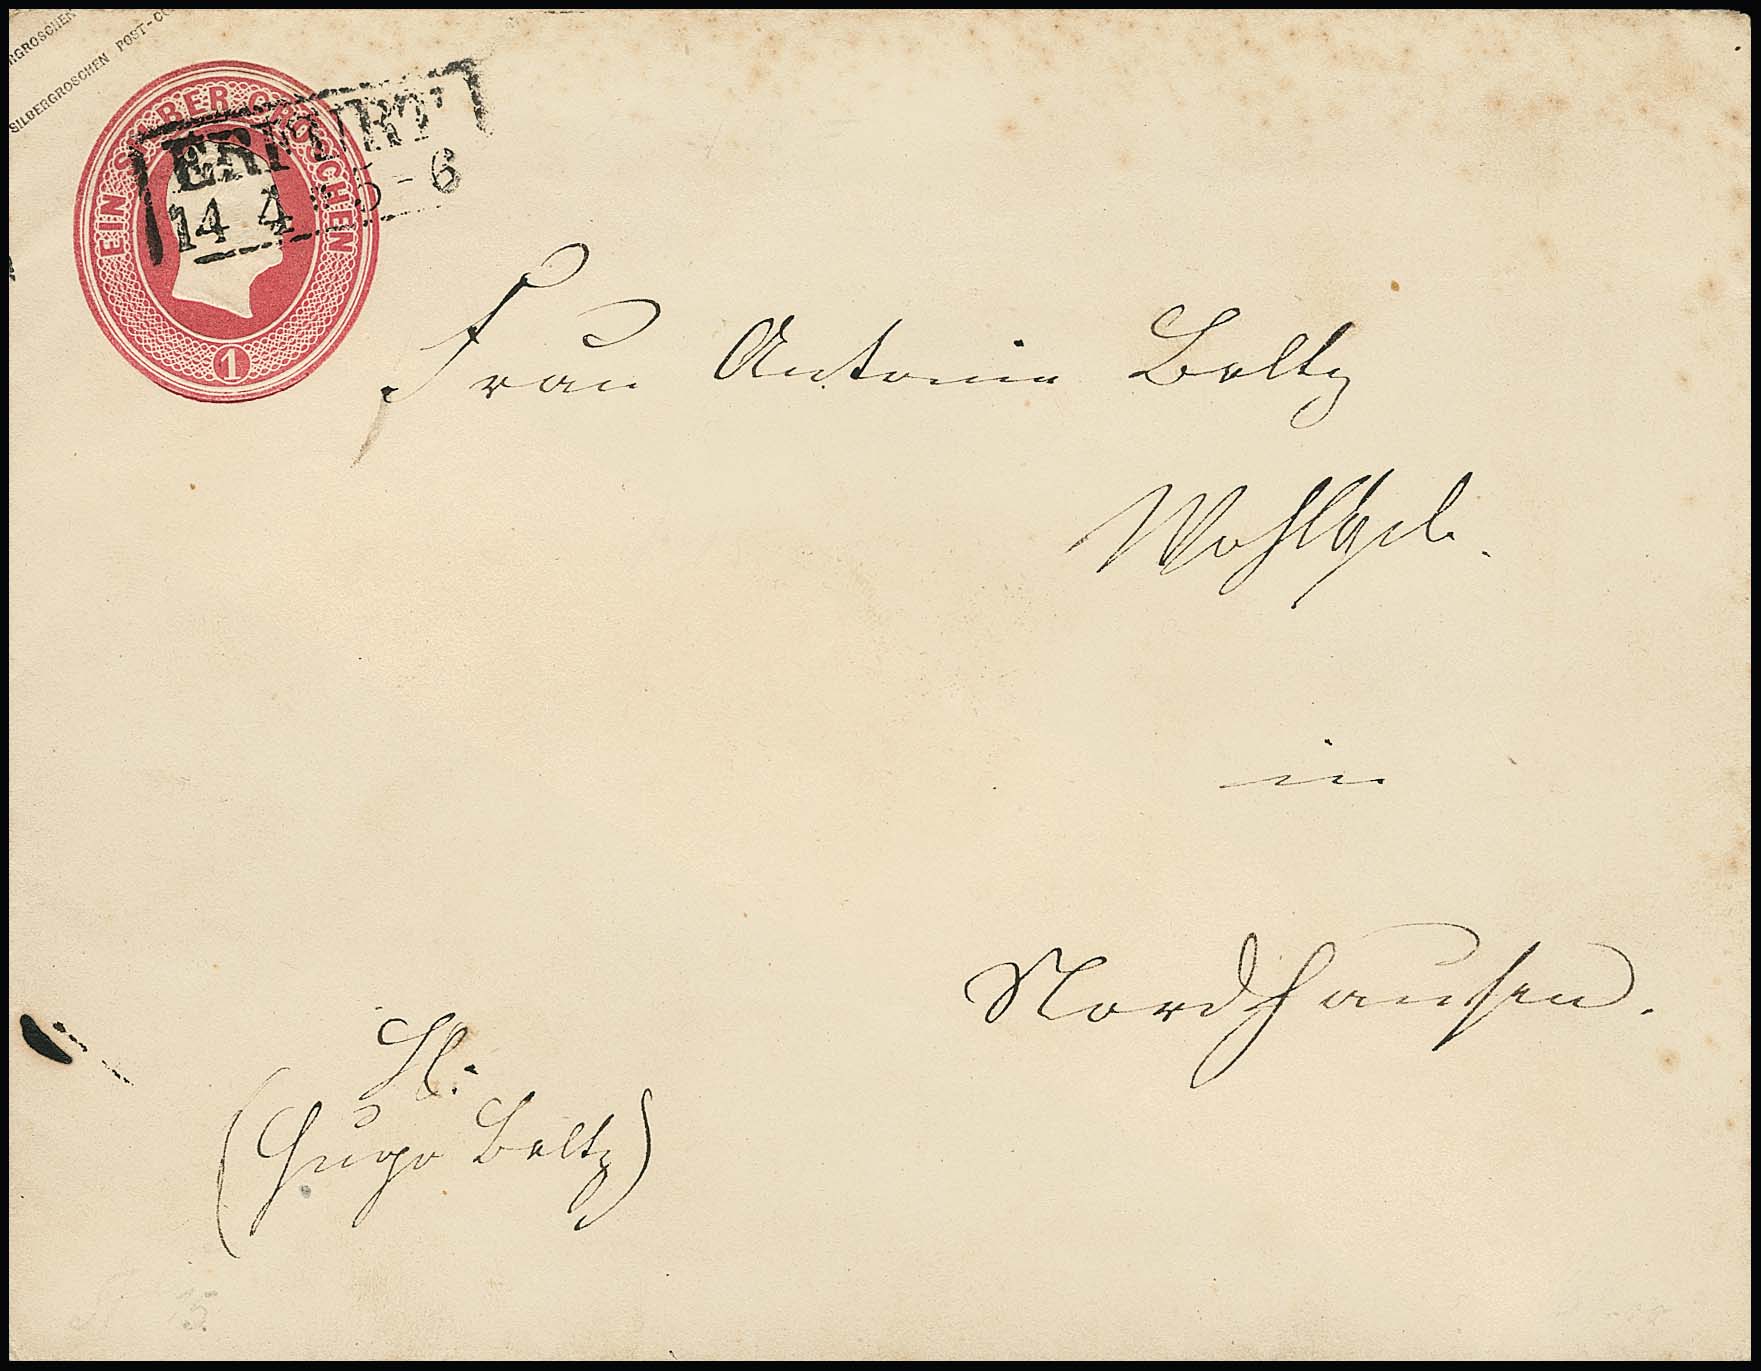 RGROSCHEN
SILBERGROSCHEN POST-CO
EIN SILBER GROSCHEN
1
ERFURT
14 4 * 5-6
Frau Antonie Beltz
Wohlgeb.
in
Nordhausen.
(Hugo Beltz)
15